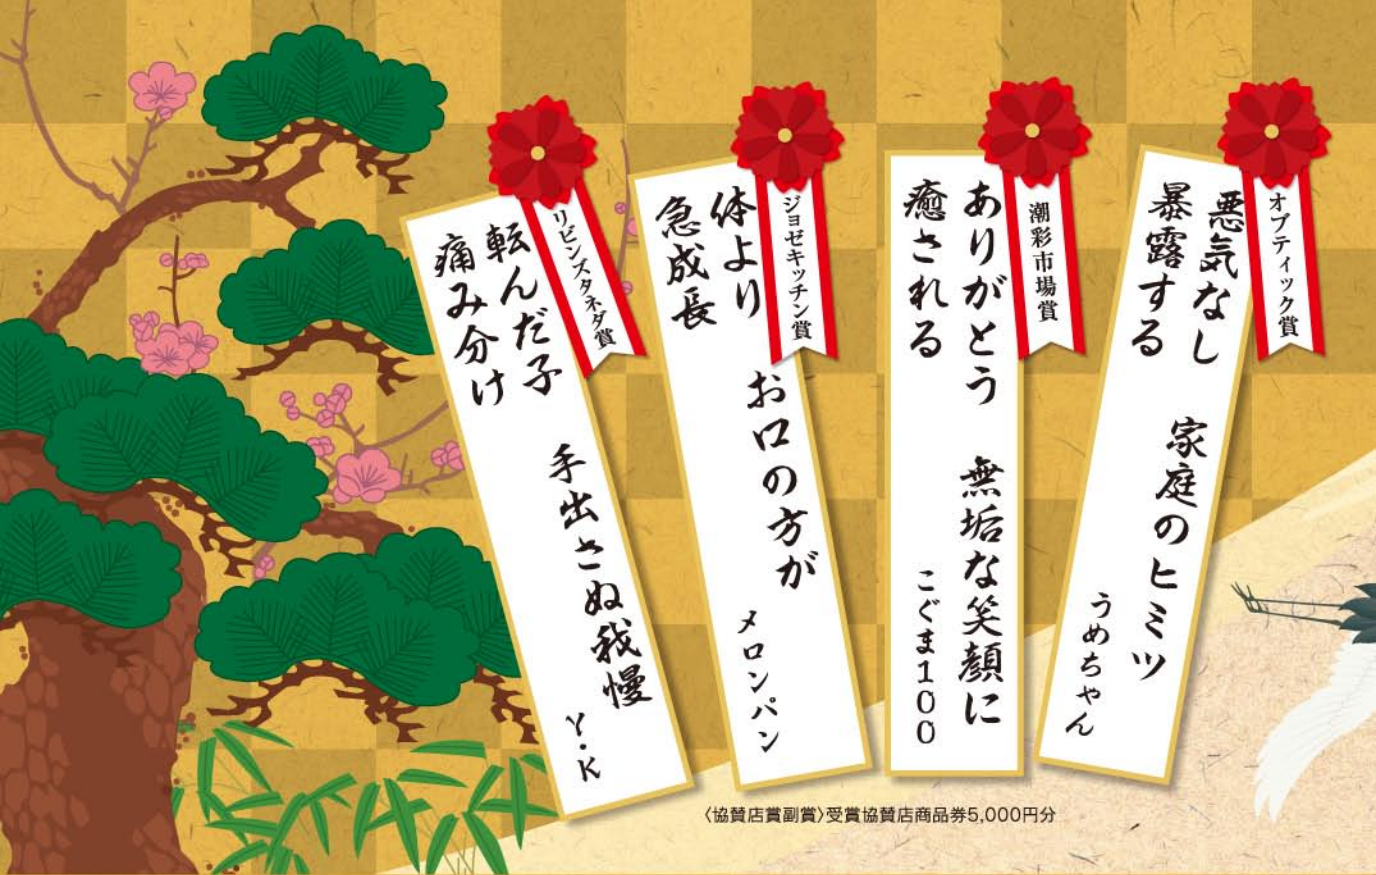 オプティック賞
悪気なし 家庭のヒミツ
暴露する
うめちゃん
潮彩市場賞
ありがとう 無垢な笑顔に
癒される
こぐま100
ジョゼキッチン賞
体より お口の方が
急成長
メロンパン
リビンズタネダ賞
転んだ子 手出さぬ我慢
痛み分け
Y・K
〈協賛店賞副賞〉受賞協賛店商品券5,000円分